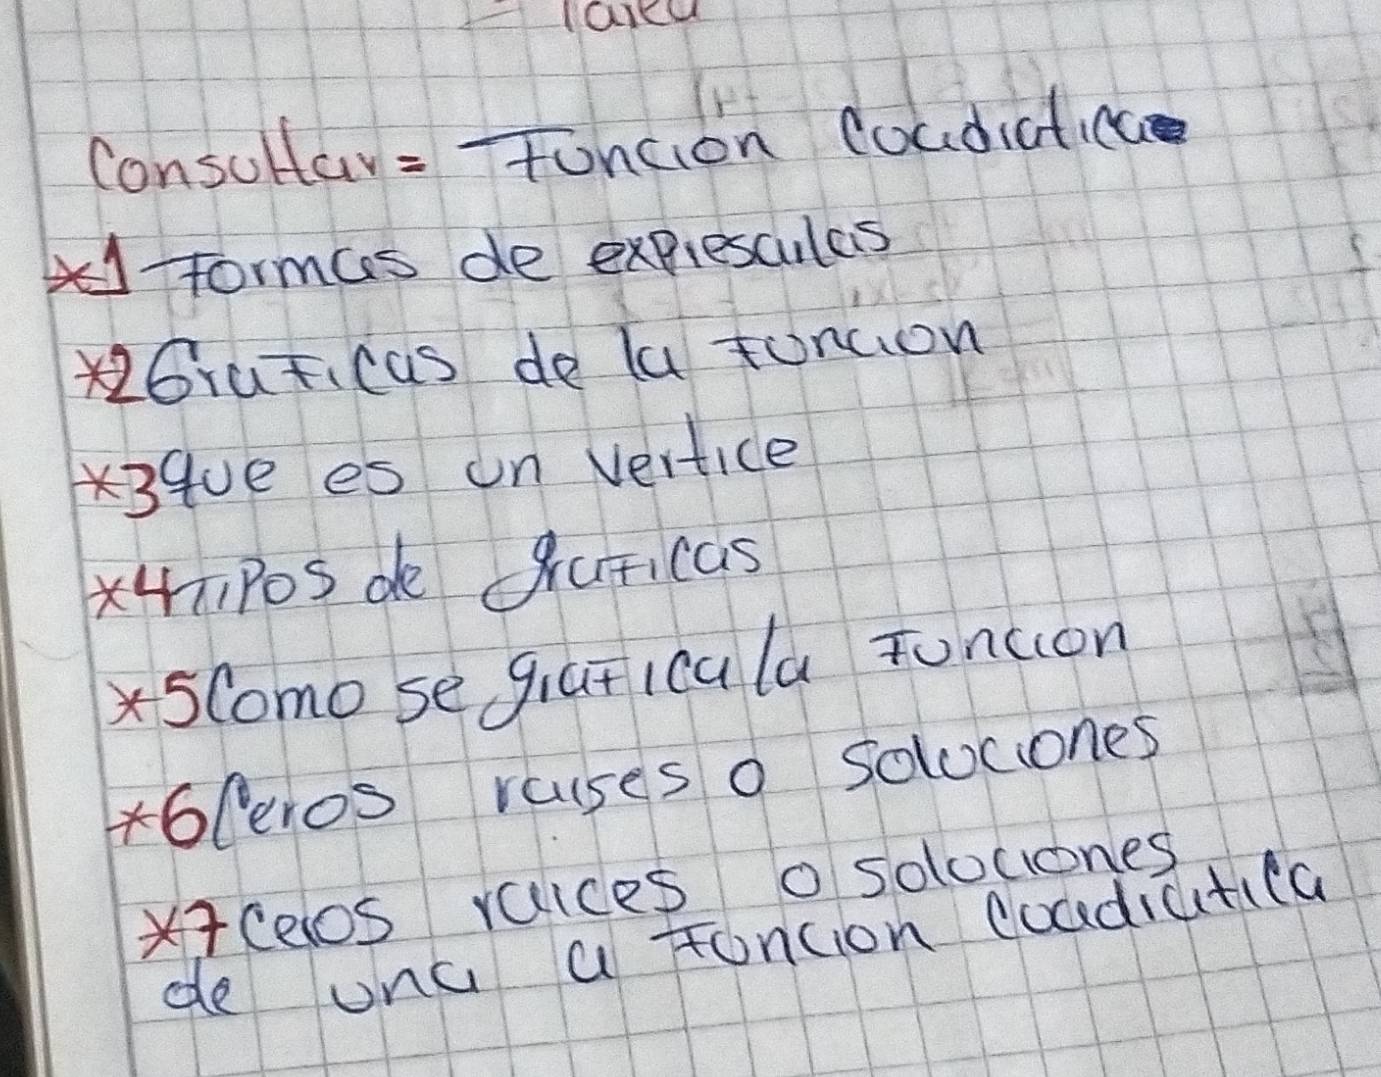 Tarea
Consultar = Función Coudratica
*1 formas de expresarlas
*2 Graficas de la funcion
*3 que es un vertice
*4 Tipos de graficas
*5 Como se grafica la funcion
*6 Ceros raises o soluciones
*7 ceros raices o solociones
de una a funcion Coadicatica